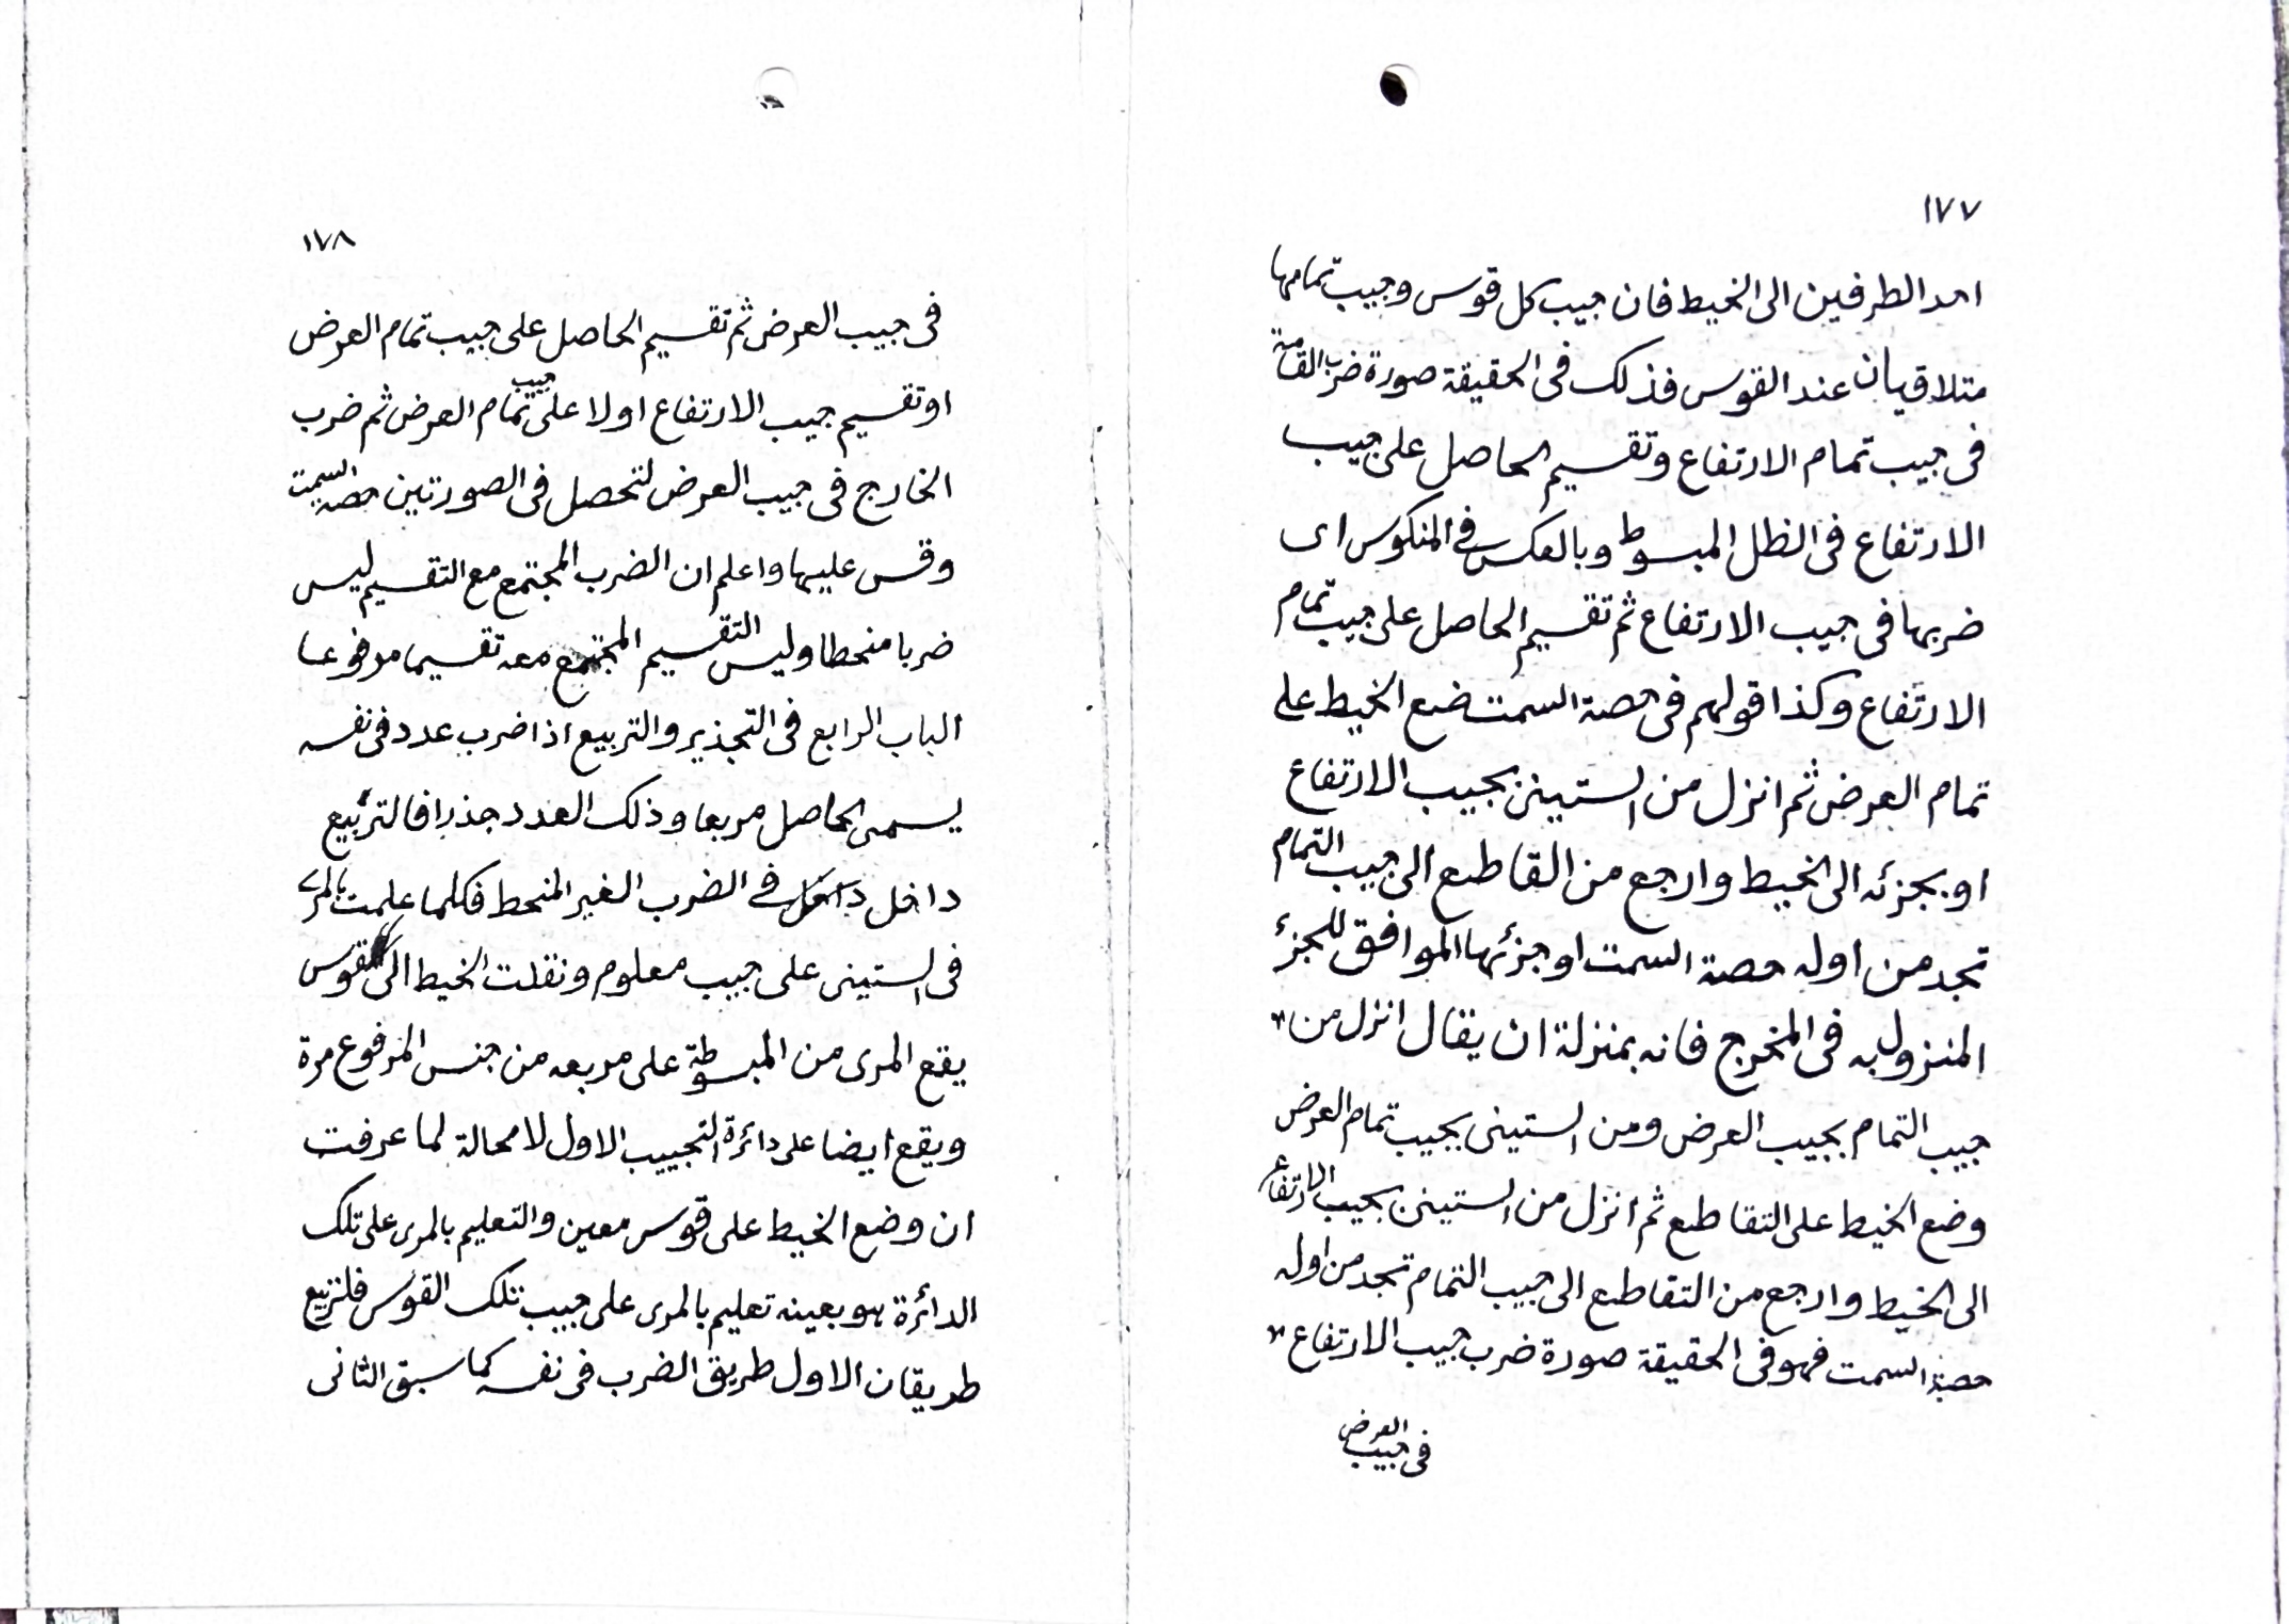 ١٧٧
احد الطرفين الى الخيط فان جيب كل قوس وجيب تمامها
متلاقيان عند القوس فذلك فى الحقيقة صورة ضرب القامة
فى جيب تمام الارتفاع وتقسيم الحاصل على جيب
الارتفاع فى الظل المبسوط وبالعكس فى المنكوس اى
ضربها فى جيب الارتفاع ثم تقسيم الحاصل على جيب تمام
الارتفاع وكذا قولهم فى حصة السمت ضع الخيط على
تمام العرض ثم انزل من الستينى بجيب الارتفاع
او بجزئه الى الخيط وارجع من القاطع الى جيب التمام
تجد من اوله حصة السمت او جزئها الموافق للجزئ
المنزول به فى المخرج فانه بمنزلة ان يقال انزل من
جيب التمام بجيب العرض ومن الستينى بجيب تمام العرض
وضع الخيط على التقاطع ثم انزل من الستينى بجيب الارتفاع
الى الخيط وارجع من التقاطع الى جيب التمام تجد من اوله
حصة السمت فهو فى الحقيقة صورة ضرب جيب الارتفاع
فى جيب العرض
١٧٨
فى جيب العرض ثم تقسيم الحاصل على جيب تمام العرض
او تقسيم جيب الارتفاع اولا على جيب تمام العرض ثم ضرب
الخارج فى جيب العرض لتحصل فى الصورتين حصة السمت
وقس عليها واعلم ان الضرب المجتمع مع التقسيم ليس
ضربا منحطا وليس التقسيم المجتمع معه تقسيما مرفوعا
الباب الرابع فى التجذير والتربيع اذا ضرب عدد فى نفسه
يسمى الحاصل مربعا وذلك العدد جذرا فالتربيع
داخل فى الضرب الغير المنحط فكلما علمت بالمرى
فى الستينى على جيب معلوم ونقلت الخيط الى قوس
يقع المرى من المبسوطة على مربعه من جنس المرفوع مرة
ويقع ايضا على دائرة التجييب الاول لا محالة لما عرفت
ان وضع الخيط على قوس معين والتعليم بالمرى على تلك
الدائرة هو بعينه تعليم بالمرى على جيب تلك القوس فلتربيع
طريقان الاول طريق الضرب فى نفسه كما سبق الثانى